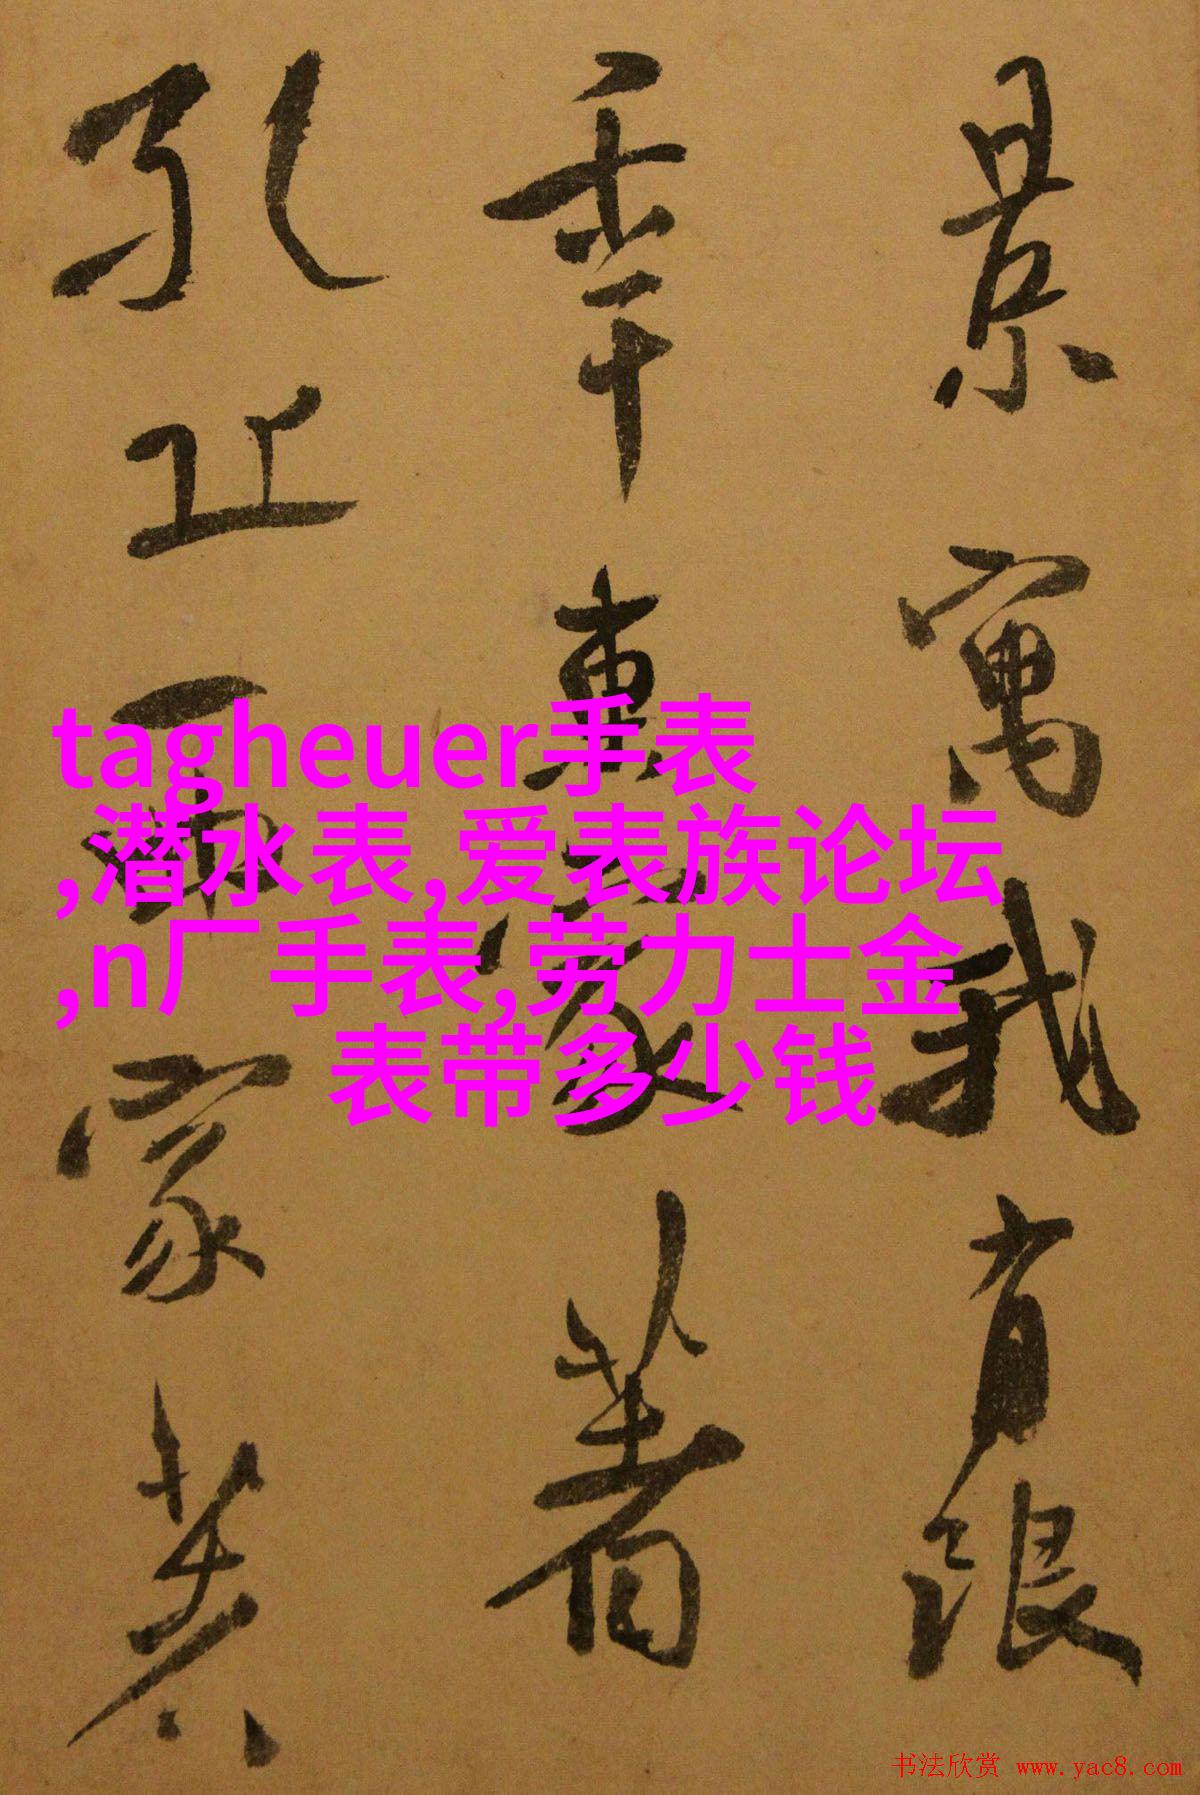 景寓我
東家著
孔丘
tagheuer手表
,潜水表,爱表族论坛
,n厂手表,劳力士金
表带多少钱
书法欣赏 www.yac8.com